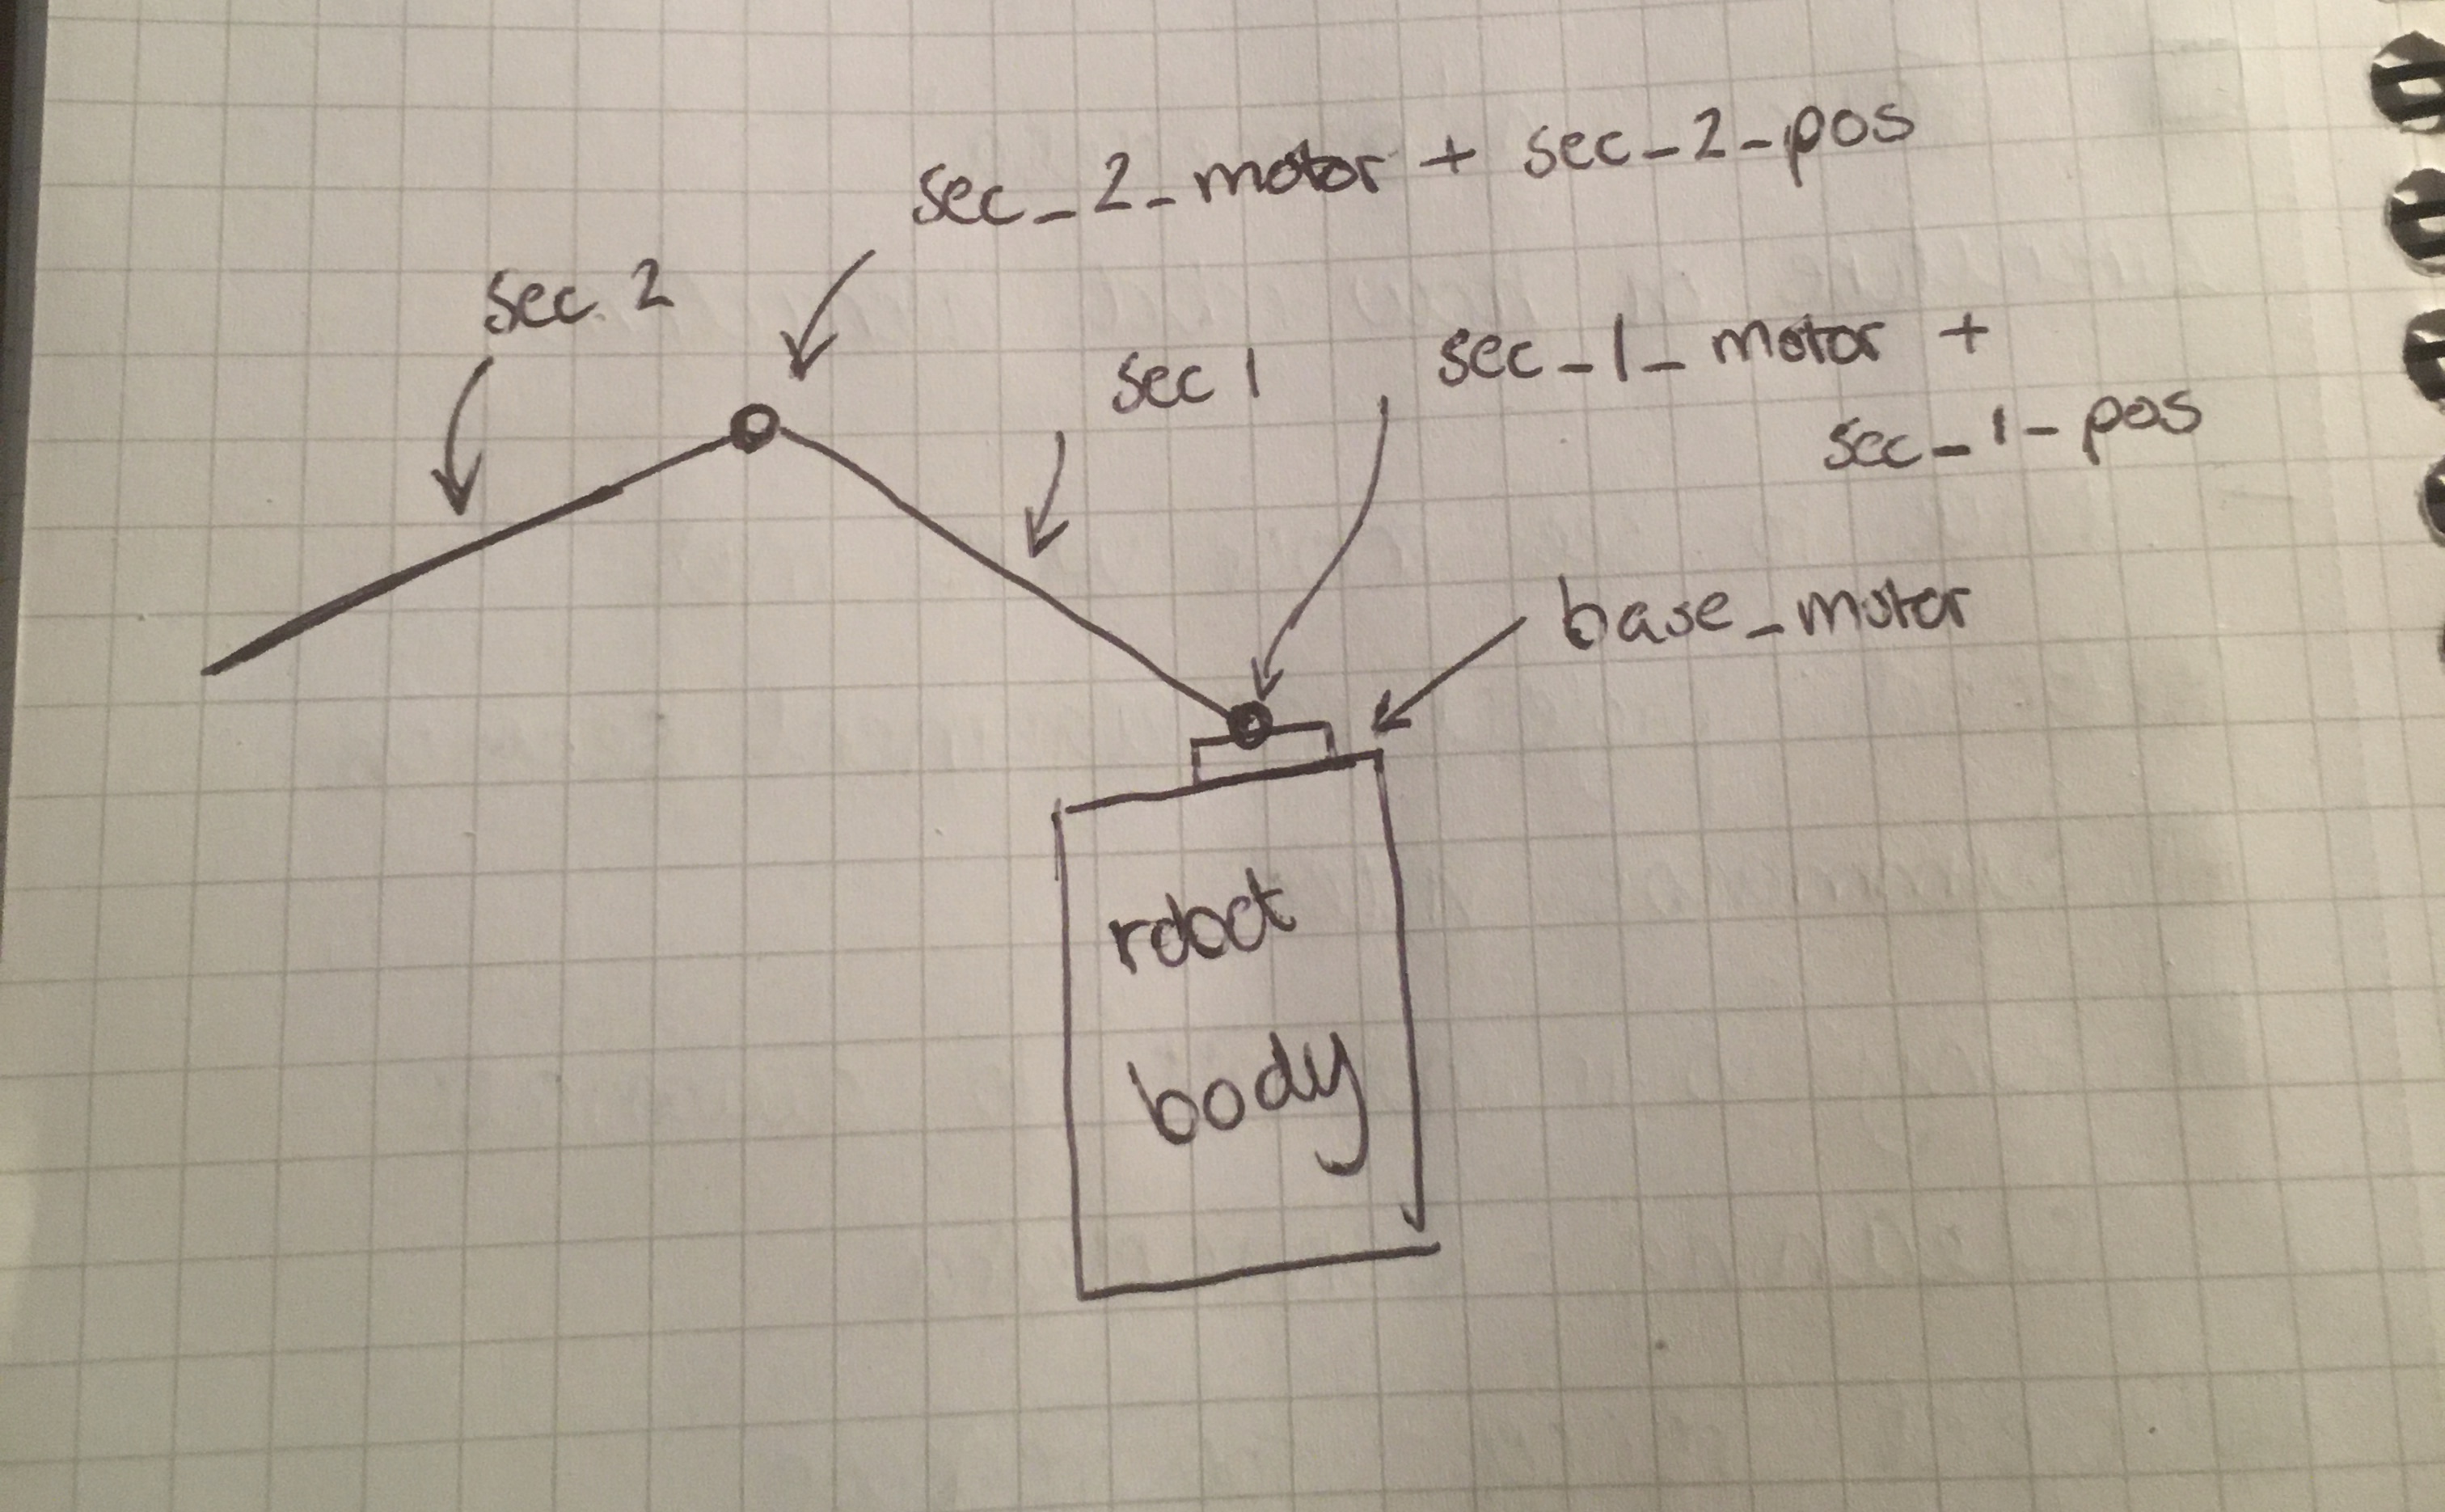 sec_2_motor + sec_2_pos
sec 2
sec 1
sec_1_motor +
sec_1_pos
base_motor
robot
body